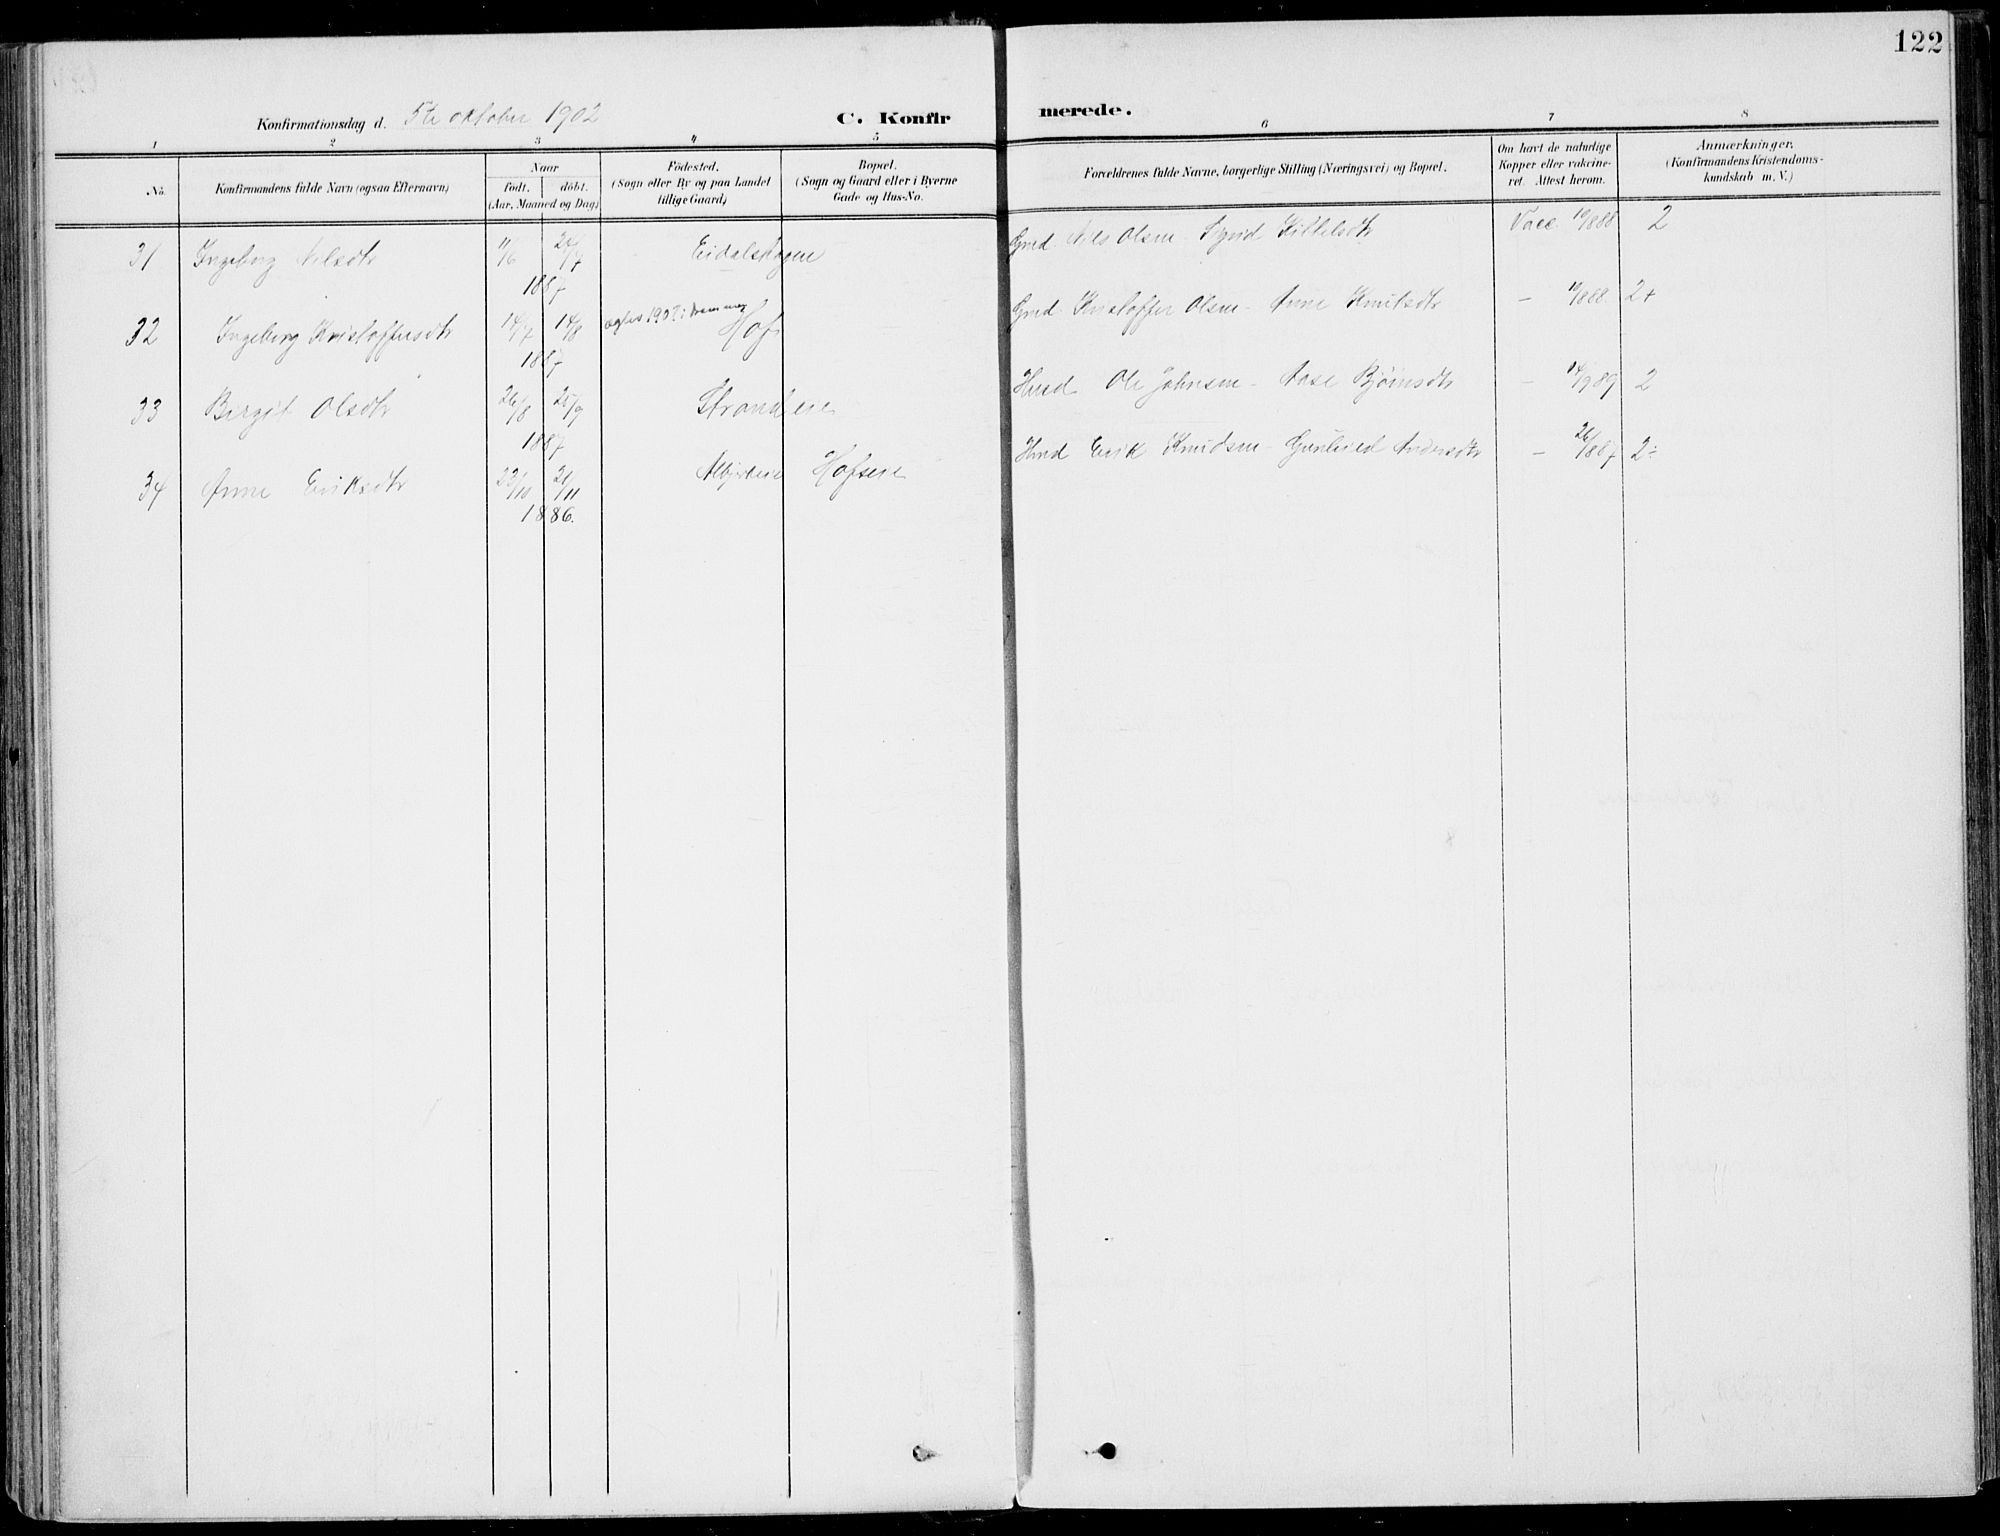 122
Konfirmationsdag d. 5te oktober 1902 C. Konfirmerede.
1 2 3 4 5 6 7 8
No. Konfirmandens fulde Navn (ogsaa Efternavn) Naar født. døbt. (Aar, Maaned og Dag) Födested. (Sogn eller By og paa Landet tillige Gaard) Bopæl. (Sogn og Gaard eller i Byerne Gade og Hus-No. Forældrenes fulde Navne, borgerlige Stilling (Næringsvei) og Bopæl. Om havt de naturlige Kopper eller vakcineret. Attest herom. Anmærkninger. (Konfirmandens Kristendomskundskab m. V.)
31 Ingeborg Nilsdtr 11/6 24/7 1887 Eidalshagen Gmd. Nils Olsen - Sigrid Kittelsdtr Vacc. 10/888 2
32 Ingeborg Kristoffersdtr 14/7 14/8 1887 1902 i Hof Gmd Kristoffer Olsen - Anne Knutsdtr - 10/888 2+
33 Birgit Olsdtr 26/8 25/9 1887 Strandeie Husd Ole Johnsen - Aase Bjørnsdtr - 14/989 2
34 Anne Eriksdtr 23/10 21/11 1886. Hofseie Husd Erik Knudsen - Gunhild Andersdtr - 26/887 2÷